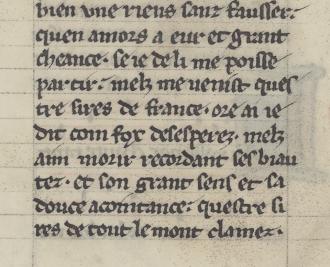 bien vne riens sanz fausser.
quen amors a eur et grant
cheance. se ie de li me poisse
partir. melz me venist ques
tre sires de france. ore ai ie
dit com fox desesperez. melz
aim morir recordant ses biau
tez. et son grant sens et sa
douce acointance. questre si
res de tout le mont clamez.